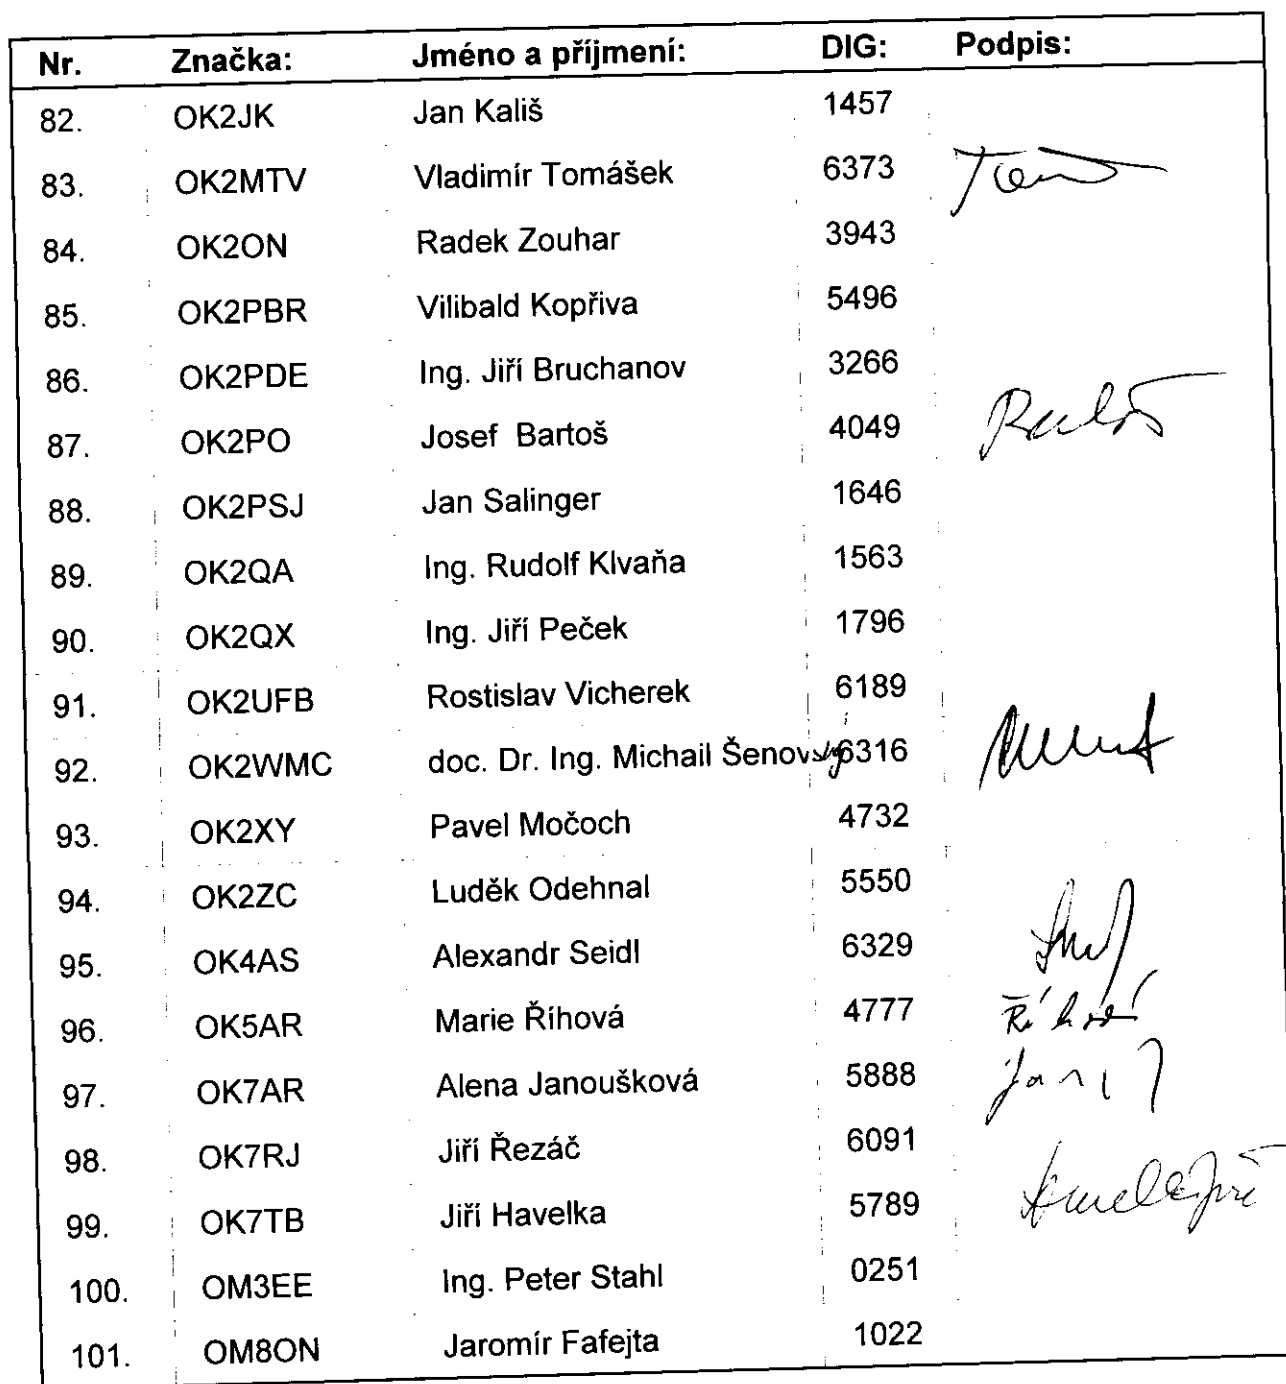 Nr. Značka: Jméno a příjmení: DIG: Podpis:
82. OK2JK Jan Kališ 1457
83. OK2MTV Vladimír Tomášek 6373
84. OK2ON Radek Zouhar 3943
85. OK2PBR Vilibald Kopřiva 5496
86. OK2PDE Ing. Jiří Bruchanov 3266
87. OK2PO Josef Bartoš 4049
88. OK2PSJ Jan Salinger 1646
89. OK2QA Ing. Rudolf Klvaňa 1563
90. OK2QX Ing. Jiří Peček 1796
91. OK2UFB Rostislav Vicherek 6189
92. OK2WMC doc. Dr. Ing. Michail Šenovský 6316
93. OK2XY Pavel Močoch 4732
94. OK2ZC Luděk Odehnal 5550
95. OK4AS Alexandr Seidl 6329
96. OK5AR Marie Říhová 4777 Říhová
97. OK7AR Alena Janoušková 5888
98. OK7RJ Jiří Řezáč 6091
99. OK7TB Jiří Havelka 5789
100. OM3EE Ing. Peter Stahl 0251
101. OM8ON Jaromír Fafejta 1022